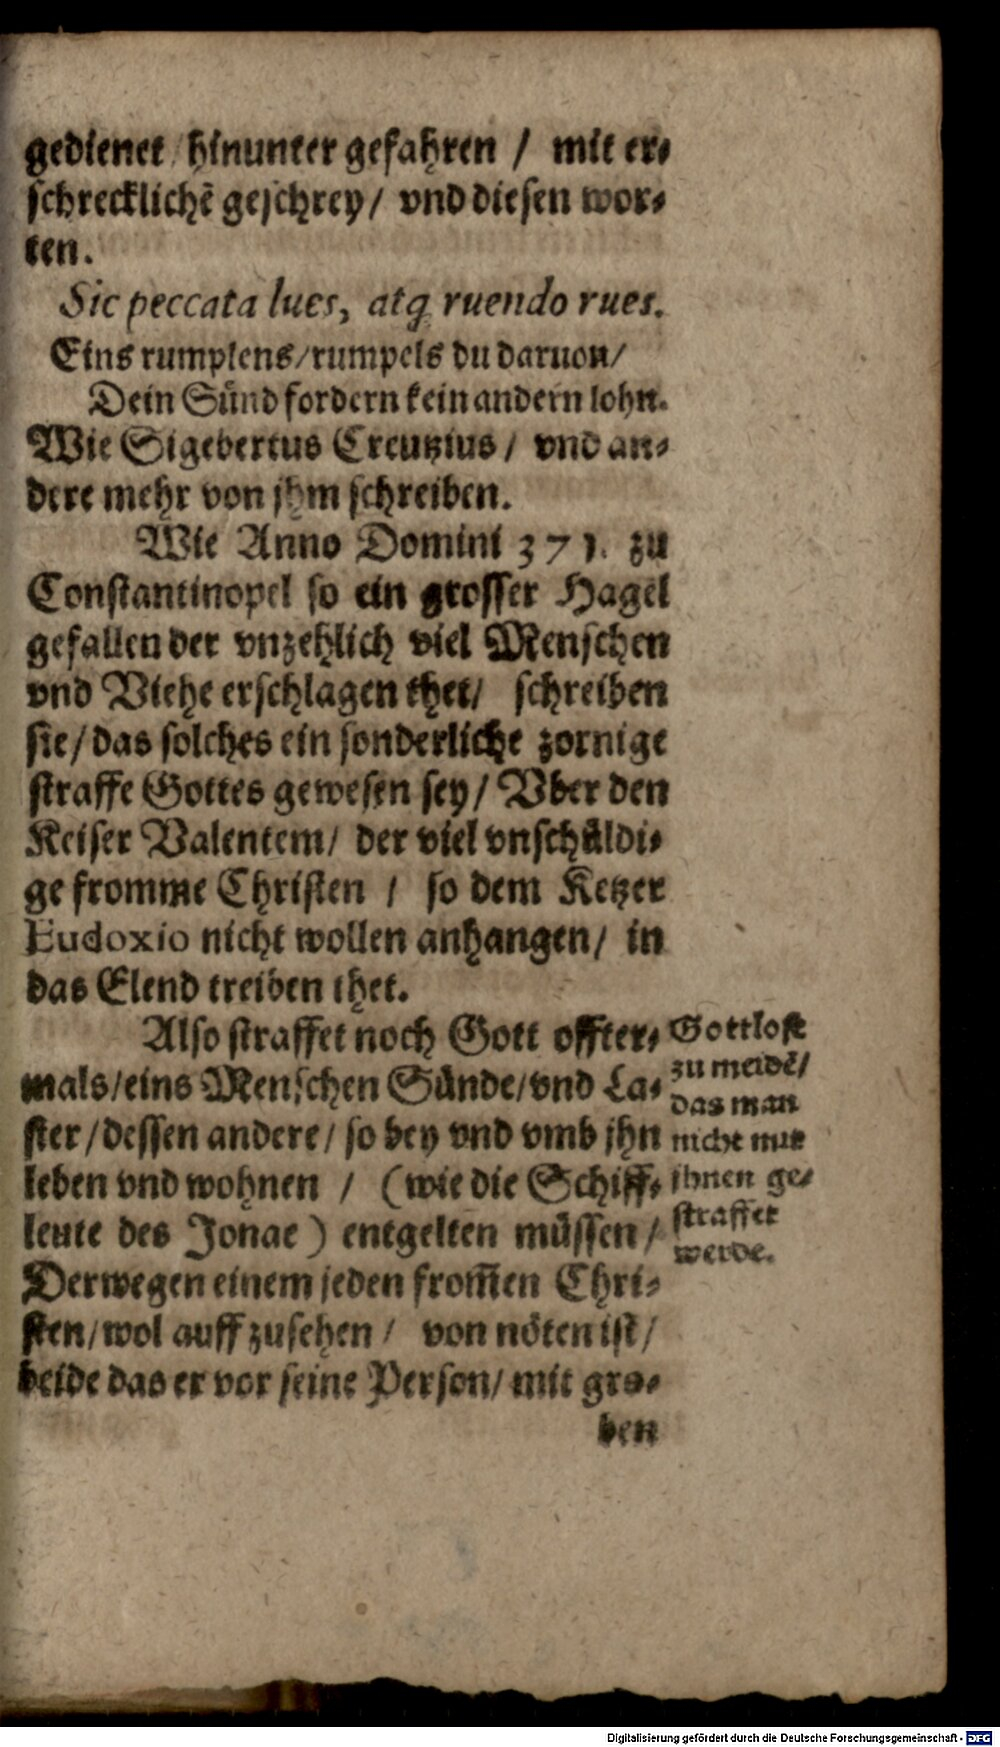 gedienet / hinunter gefahren / mit er⸗
schrecklichē geschrey / vnd diesen wor⸗
ten.
Sic peccata lues, atq; ruendo rues.
Eins rumplens / rumpels du daruon /
Dein Sünd fordern kein andern lohn.
Wie Sigebertus Creutzius / vnd an⸗
dere mehr von jhm schreiben.
Wie Anno Domini 371. zu
Constantinopel so ein grosser Hagel
gefallen der vnzehlich viel Menschen
vnd Viehe erschlagen thet / schreiben
sie / das solches ein sonderliche zornige
straffe Gottes gewesen sey / Vber den
Keiser Valentem / der viel vnschüldi⸗
ge fromme Christen / so dem Ketzer
Eudoxio nicht wollen anhangen / in
das Elend treiben thet.
Also straffet noch Gott offter⸗
mals / eins Menschen Sünde / vnd La⸗
ster / dessen andere / so bey vnd vmb jhn
leben vnd wohnen / (wie die Schiff⸗
leute des Jonae) entgelten müssen /
Derwegen einem jeden from̄en Chri⸗
sten / wol auff zusehen / von nöten ist /
beide das er vor seine Person / mit gro⸗
ben
Gottlose
zu meidē /
das man
nicht mit
ihnen ge⸗
straffet
werde.
Digitalisierung gefördert durch die Deutsche Forschungsgemeinschaft - DFG